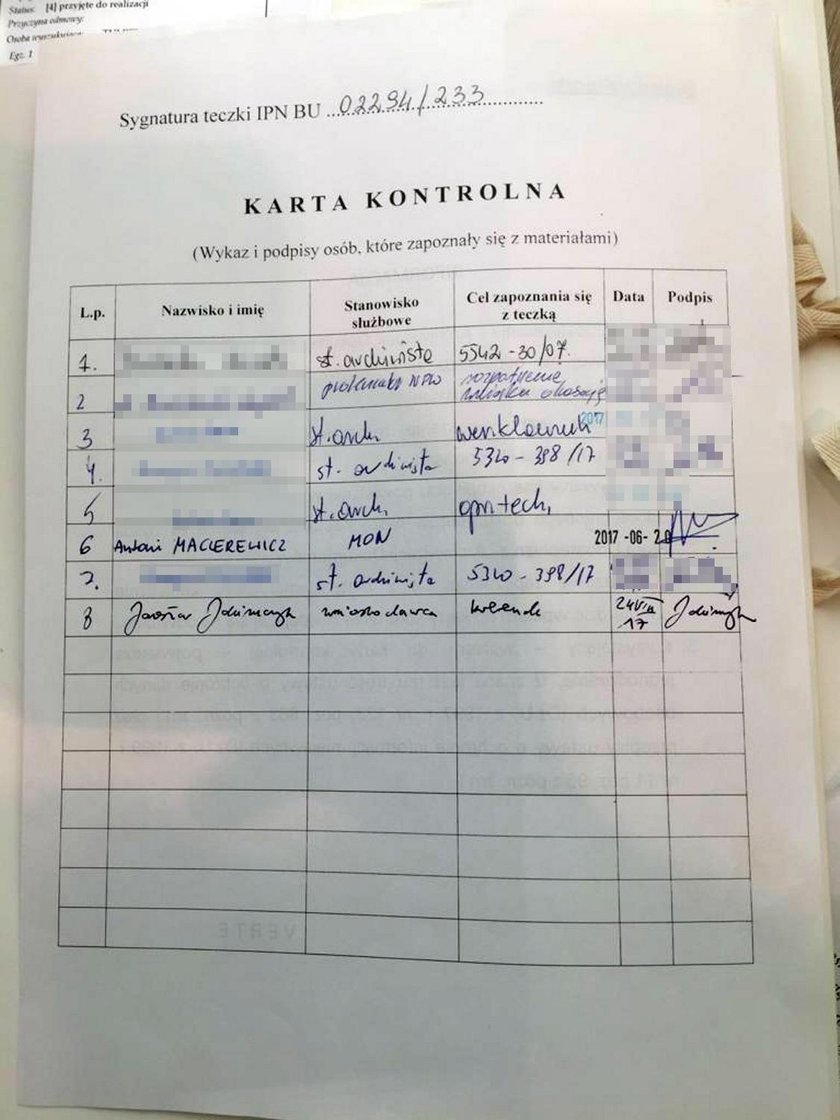 Status: [4] przyjęte do realizacji
Przyczyna odmowy:
Osoba
Egz. 1
Sygnatura teczki IPN BU 02294/233
KARTA KONTROLNA
(Wykaz i podpisy osób, które zapoznały się z materiałami)
L.p. Nazwisko i imię Stanowisko służbowe Cel zapoznania się z teczką Data Podpis
1. st. archiwista 5542-30/07.
2 prokurator
3 st. arch. 2017
4. st. archiwista 5340-398/17
5 st. arch. opr. tech.
6 Antoni MACIEREWICZ MON 2017 -06- 20
7. st. archiwista 5340-398/17
8 wnioskodawca 17
VERTE